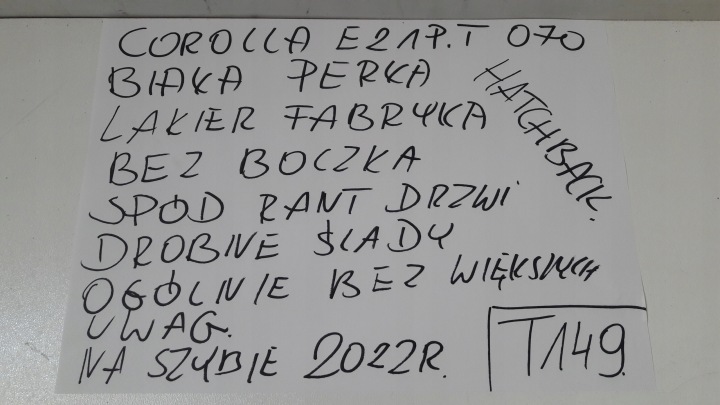 COROLLA E21P.T 070
BIAŁA PERŁA
HATCHBACK.
LAKIER FABRYKA
BEZ BOCZKA
SPÓD RANT DRZWI
DROBNE ŚLADY
OGÓLNIE BEZ WIĘKSZYCH
UWAG.
NA SZYBIE 2022R.
T149.